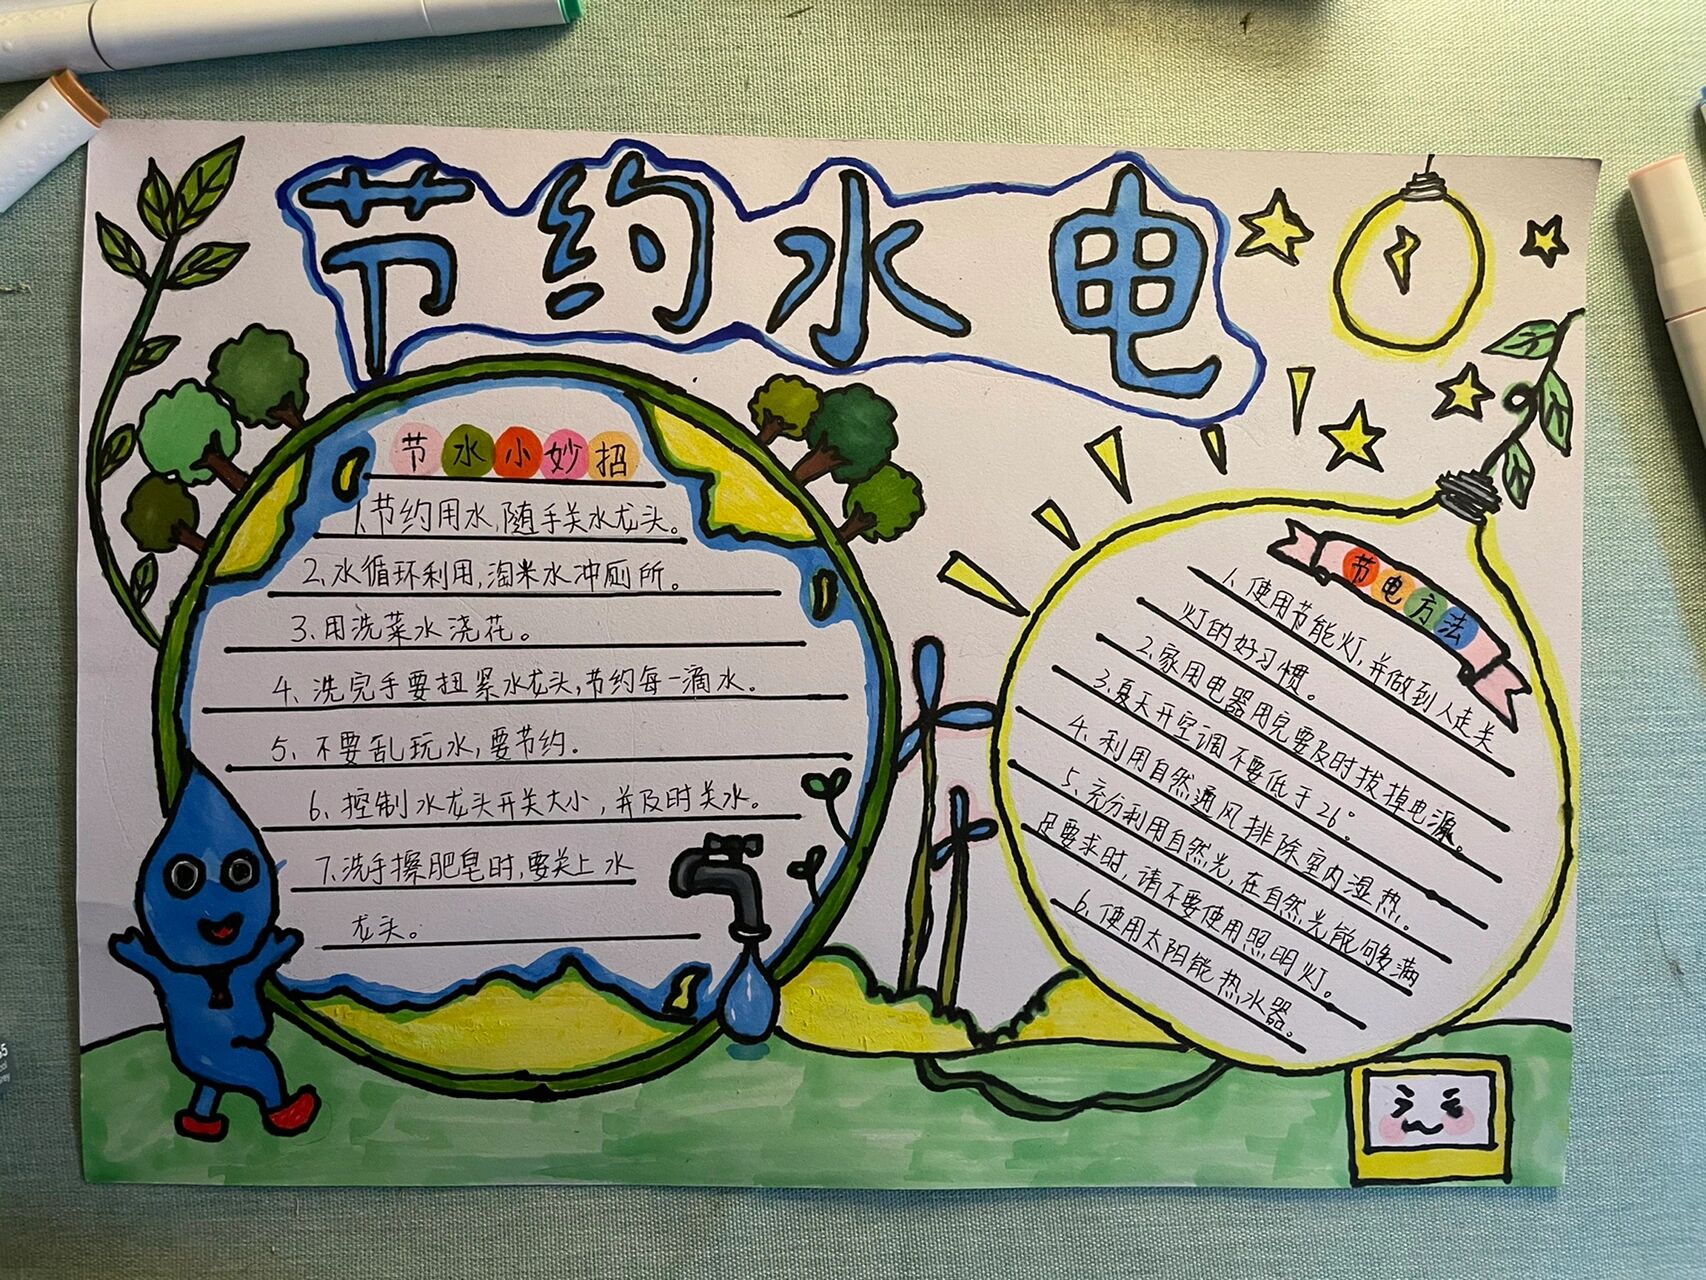 节约水电
节水小妙招
1、节约用水,随手关水龙头。
2、水循环利用,淘米水冲厕所。
3、用洗菜水浇花。
4、洗完手要扭紧水龙头,节约每一滴水。
5、不要乱玩水,要节约。
6、控制水龙头开关大小,并及时关水。
7、洗手擦肥皂时,要关上水
龙头。
节电方法
1、使用节能灯,并做到人走关
灯的好习惯。
2、家用电器用完要及时拔掉电源。
3、夏天开空调不要低于26°。
4、利用自然通风排除室内湿热。
5、充分利用自然光,在自然光能够满
足要求时,请不要使用照明灯。
6、使用太阳能热水器。